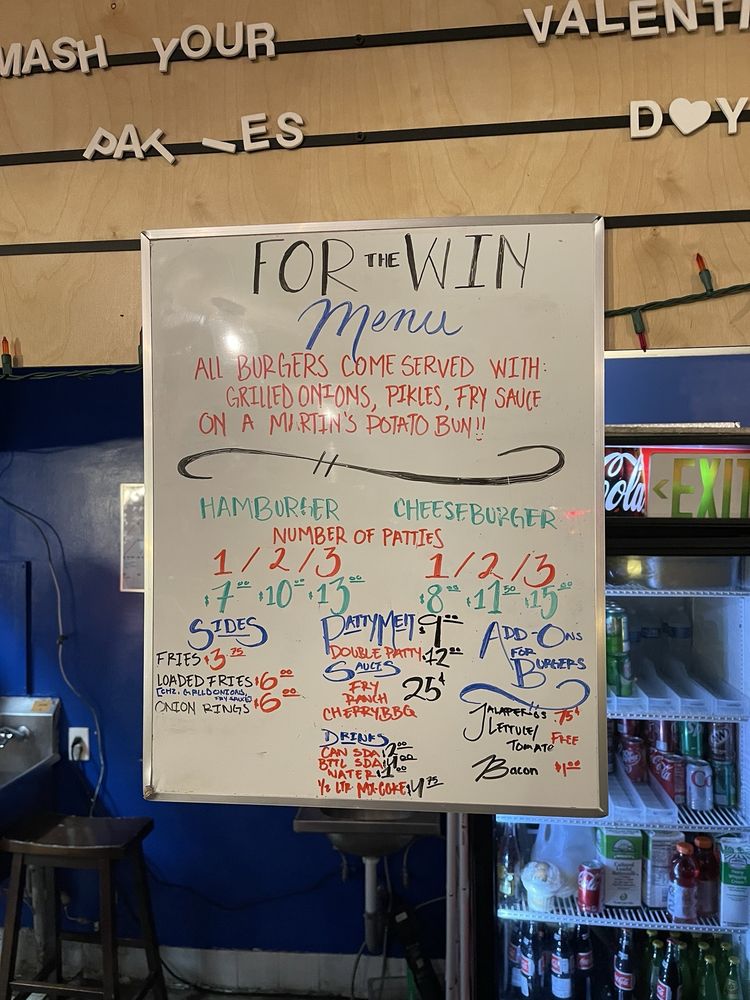 MASH YOUR
PATTIES
VALENTI
D♥Y
FOR THE WIN
Menu
ALL BURGERS COME SERVED WITH:
GRILLED ONIONS, PIKLES, FRY SAUCE
ON A MARTIN'S POTATO BUN!!
HAMBURGER CHEESEBURGER
NUMBER OF PATTIES
1/2/3 1/2/3
$7.00 $10.00 $13.00 $8.00 $11.50 $15.00
SIDES
FRIES $3.75
LOADED FRIES $6.00
(CHZ, GRILLD ONIONS, FRY SAUCE)
ONION RINGS $6.00
PATTY MELT $9.00
DOUBLE PATTY $12.00
SAUCES 25¢
FRY
RANCH
CHERRY BBQ
DRINKS
CAN SDA $2.00
BTTL SDA $4.00
WATER $1.00
1/2 LTR MX-COKE $4.75
ADD-ONS
FOR
BURGERS
JALAPEÑOS .75¢
LETTUCE/
TOMATO FREE
BACON $1.00
Cola
<EXIT